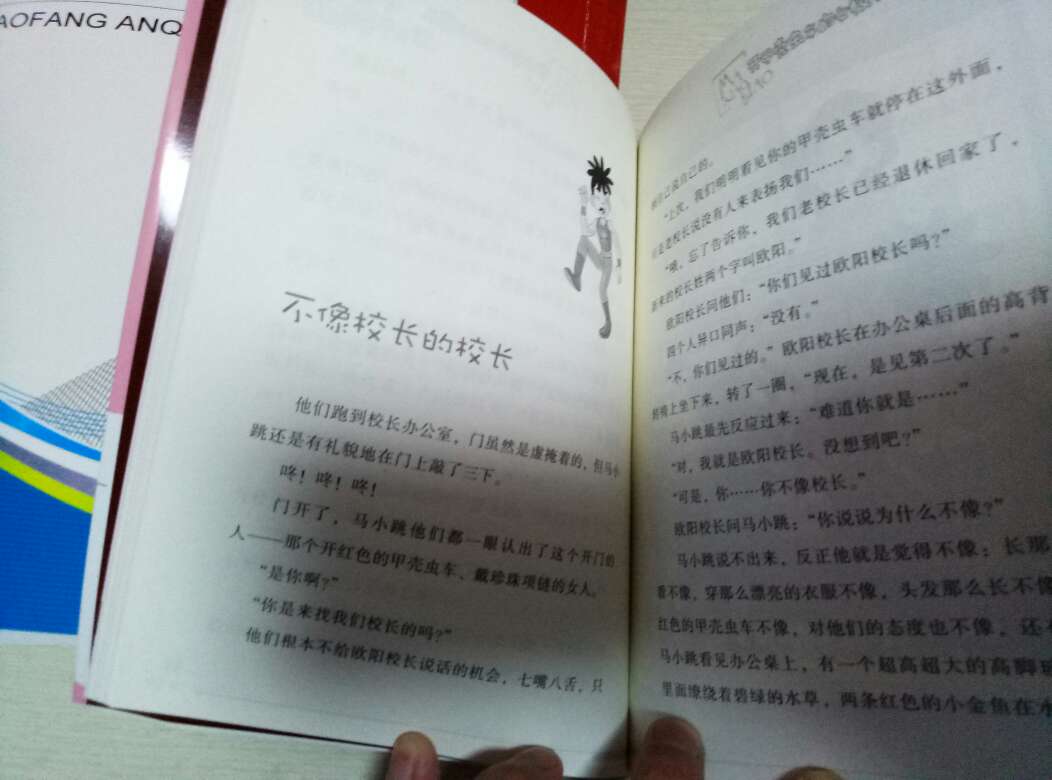 AOFANG ANQ
不像校长的校长
他们跑到校长办公室，门虽然是虚掩着的，但马小
跳还是有礼貌地在门上敲了三下。
咚！咚！咚！
门开了，马小跳他们都一眼认出了这个开门的
人——那个开红色的甲壳虫车、戴珍珠项链的女人。
“是你啊？”
“你是来找我们校长的吗？”
他们根本不给欧阳校长说话的机会，七嘴八舌，只
顾自己说自己的。
“上次，我们明明看见你的甲壳虫车就停在这外面，
可是老校长说没有人来表扬我们……”
“哦，忘了告诉你，我们老校长已经退休回家了，
新来的校长姓两个字叫欧阳。”
欧阳校长问他们：“你们见过欧阳校长吗？”
四个人异口同声：“没有。”
“不，你们见过的。”欧阳校长在办公桌后面的高背
转椅上坐下来，转了一圈，“现在，是见第二次了。”
马小跳最先反应过来：“难道你就是……”
“对，我就是欧阳校长。没想到吧？”
“可是，你……你不像校长。”
欧阳校长问马小跳：“你说说为什么不像？”
马小跳说不出来，反正他就是觉得不像：长那
看不像，穿那么漂亮的衣服不像，头发那么长不像
红色的甲壳虫车不像，对他们的态度也不像。还
马小跳看见办公桌上，有一个超高超大的高脚玻
里面缭绕着碧绿的水草，两条红色的小金鱼在水